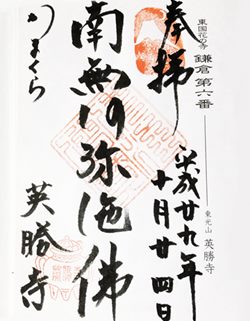 東国花の寺
鎌倉第六番
東光山 英勝寺
奉拝
平成廿九年
十月廿四日
南無阿弥陀佛
かまくら
英勝寺